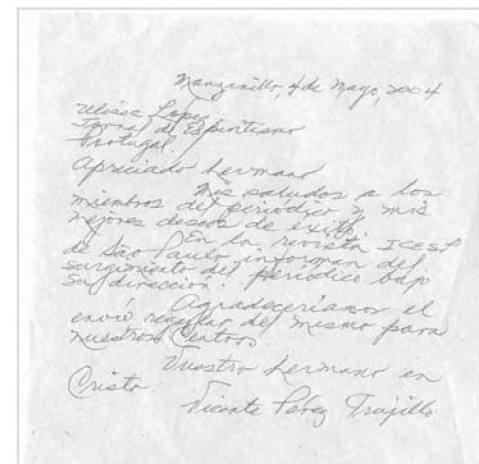 Manzanillo, 4 de Mayo, 2004
Ulisses Lopes
Jornal de Espiritismo
Portugal.
Apreciado hermano
Mis saludos a los
miembros del periódico y mis
mejores deseos de exito.
En la revista ICESP
de São Paulo, informan del
surgimiento del periódico bajo
su dirección.
Agradeceríamos el
envío regular del mismo para
nuestros Centros
Vuestro hermano en
Cristo
Vicente Pérez Trujillo